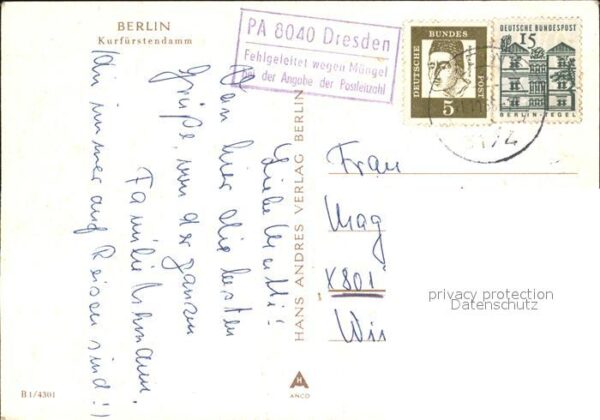 BERLIN
Kurfürstendamm
PA 8040 Dresden
Fehlgeleitet wegen Mängel
bei der Angabe der Postleitzahl
DEUTSCHE BUNDESPOST
5
DEUTSCHE BUNDESPOST
15
BERLIN-TEGEL
Liebe Mutti!
Von hier die besten
Grüße, von der ganzen
Familie
die immer auf Reisen sind!!
HANS ANDRES VERLAG BERLIN
Frau
Mag
X801
Wir
privacy protection
Datenschutz
B 1/4301
ANCO